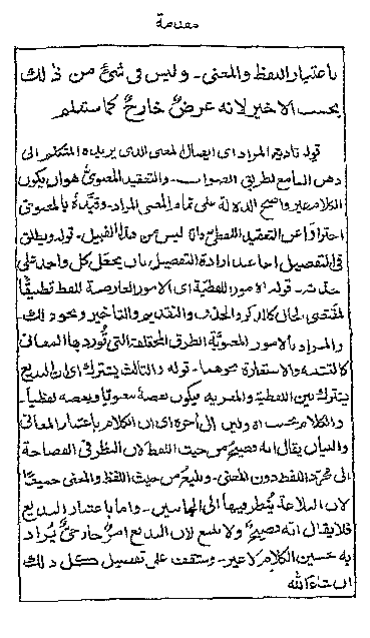 مقدمة
باعتبار اللفظ والمعنى - وليس فى شئ من ذلك
بحسب الاخير لانه عرض خارج كما ستعلم
قوله تأدية المراد اى ايصال المعنى الذى يريده المتكلم الى
ذهن السامع بطريق الصواب - والتعقيد المعنوى هو ان يكون
الكلام غير واضح الدلالة على تمام المعنى المراد - وقيده بالمعنوى
احترازا عن التعقيد اللفظى فانه ليس من هذا القبيل - قوله ويطلق
فى التفصيل اى عند ارادة التفصيل بان يجعل كل واحد على
حدته - قوله الامور اللفظية اى الامور العارضة للفظ تطبيقا
لمقتضى الحال كالذكر والحذف والتقديم والتأخير ونحو ذلك -
والمراد بالامور المعنوية الطرق المختلفة التى تورد بها المعانى
كالتشبيه والاستعارة ونحوهما - قوله والثالث يشترك اى ان البديع
يشترك بين اللفظية والمعنوية فيكون بعضه معنويا وبعضه لفظيا -
والكلام بحسب اه وليس الى أخره اى ان الكلام باعتبار المعانى
والبيان يقال انه فصيح من حيث اللفظ لان النظر فى الفصاحة
الى مجرد اللفظ دون المعنى - وبليغ من حيث اللفظ والمعنى جميعا
لان البلاغة ينظر فيها الى الجانبين - واما باعتبار البديع
فلا يقال انه فصيح ولا بليغ لان البديع امر خارجى يراد
به تحسين الكلام لا غير - وستقف على تفصيل كل ذلك
ان شاء الله